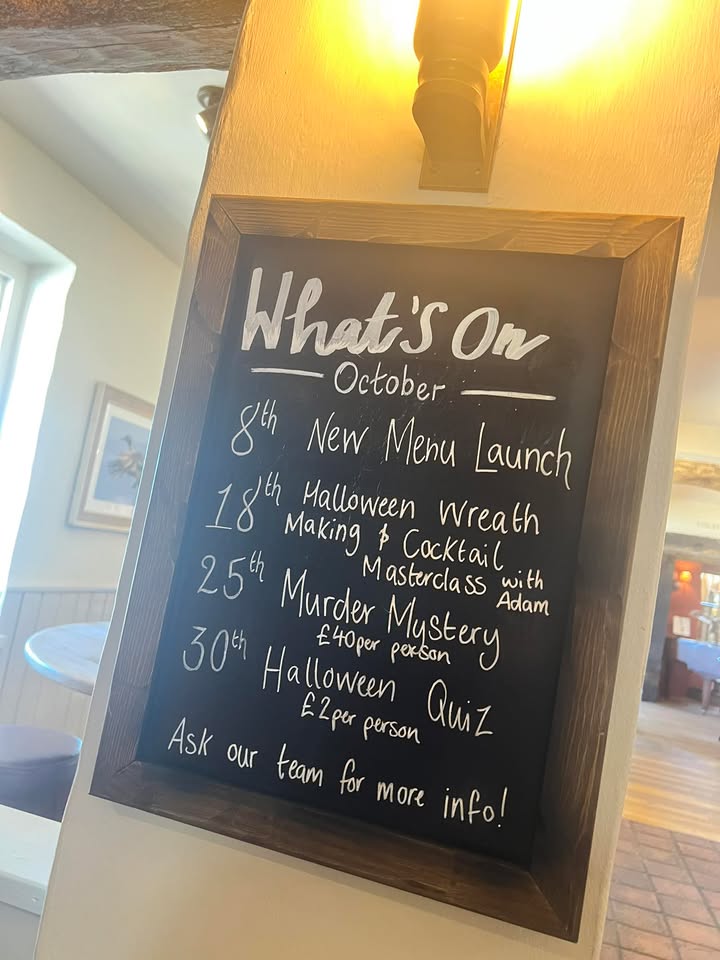 What's On
October
8th New Menu Launch
18th Halloween Wreath
Making & Cocktail
Masterclass with
Adam
25th Murder Mystery
£40 per person
30th Halloween Quiz
£2 per person
Ask our team for more info!